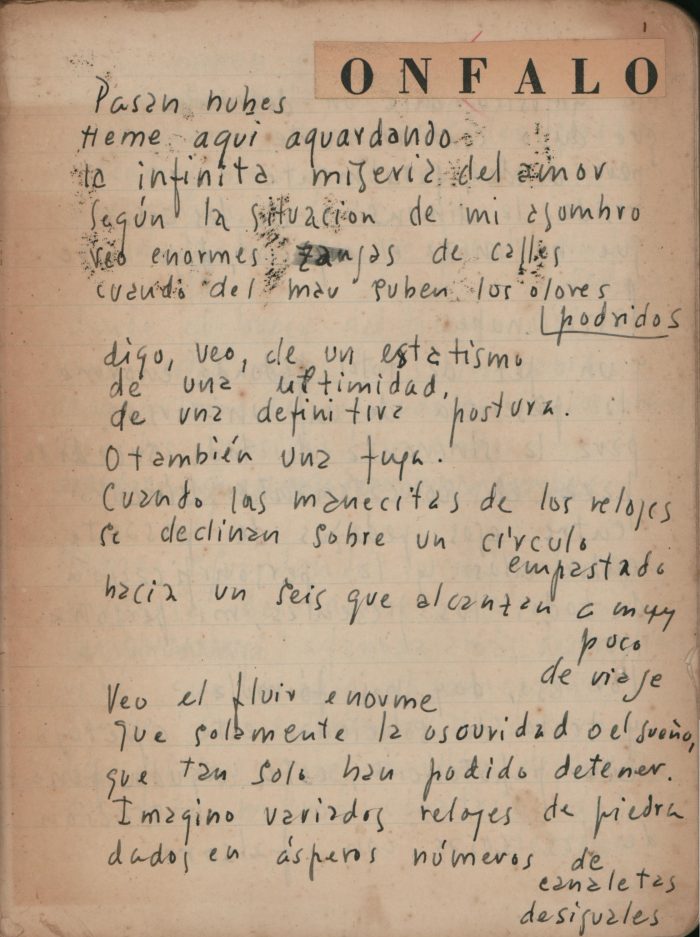 1
ONFALO
Pasan nubes
Heme aqui aguardando
la infinita miseria del amor
Según la situacion de mi asombro
veo enormes zanjas de calles
cuando del mar suben los olores
podridos
digo, veo, de un estatismo
de una ultimidad,
de una definitiva postura.
O también una fuga.
Cuando las manecitas de los relojes
se declinan sobre un círculo
empastado
hacia un seis que alcanzan a muy
poco
de viaje
Veo el fluir enorme
que solamente la oscuridad o el sueño,
que tan solo han podido detener.
Imagino variados relojes de piedra
dados en ásperos números de
canaletas
desiguales